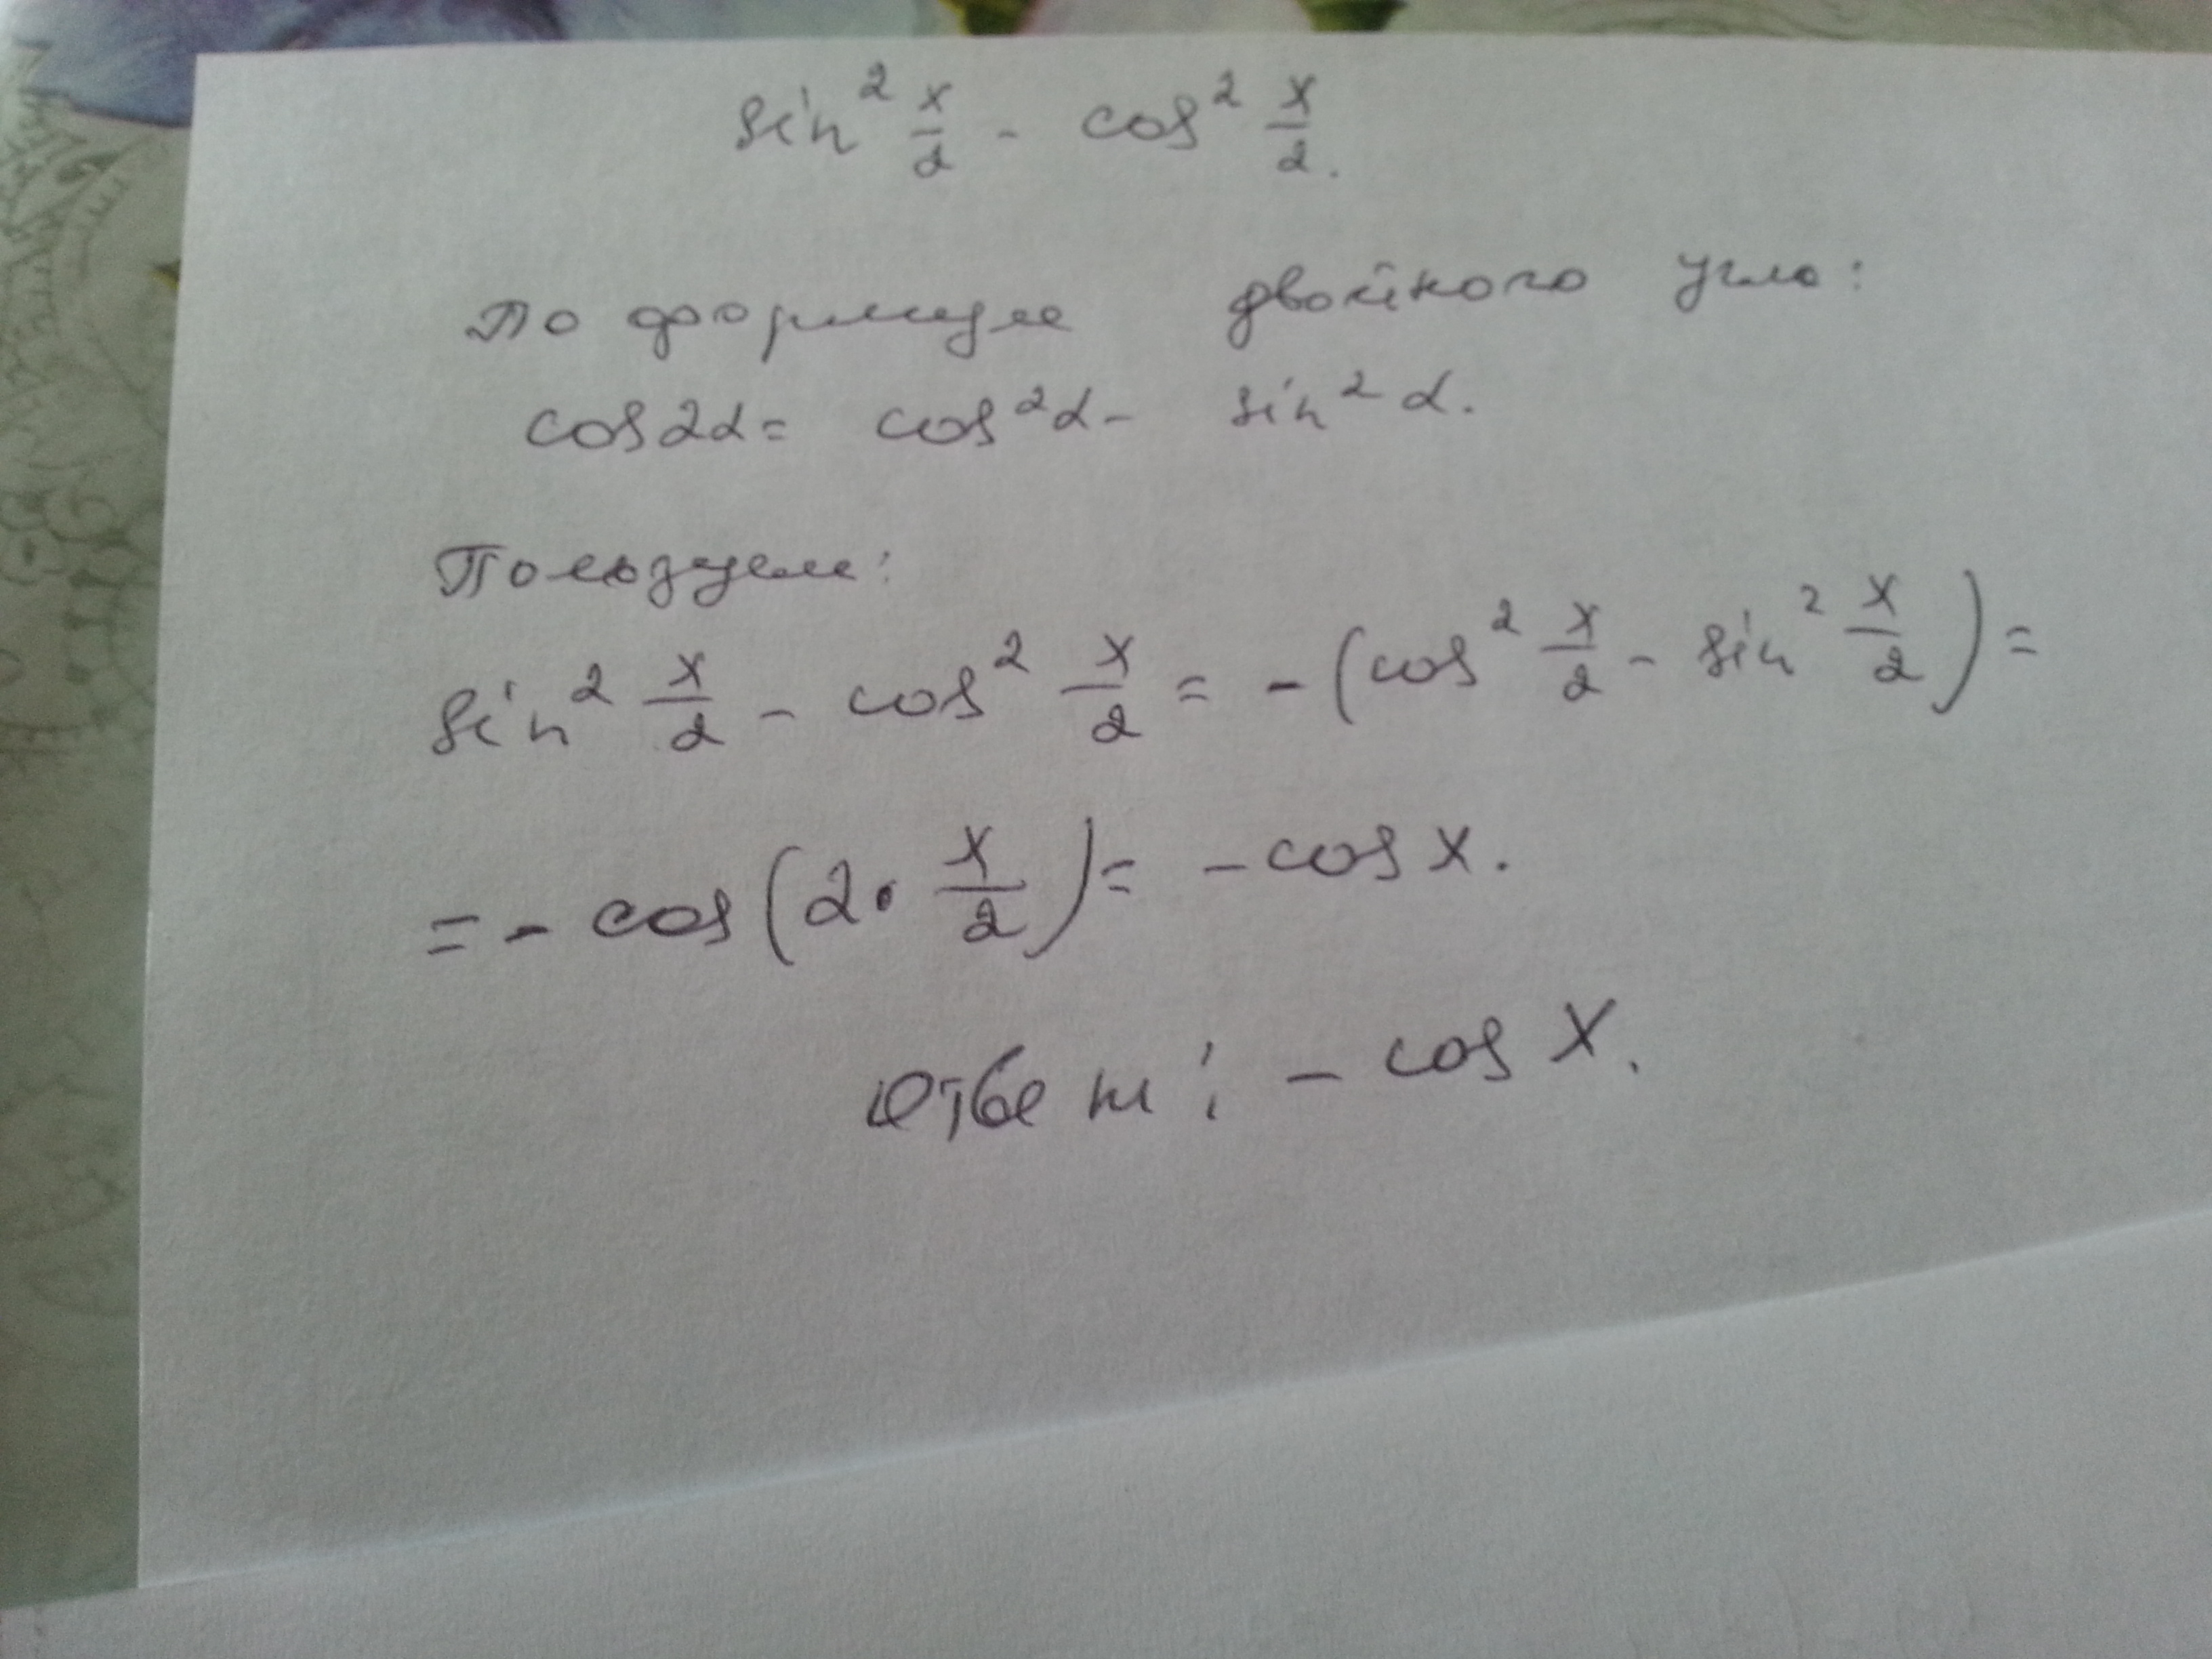 sin² x/2 - cos² x/2.
По формуле двойного угла:
cos2α = cos²α - sin²α.
Пользуем:
sin² x/2 - cos² x/2 = -(cos² x/2 - sin² x/2) =
= - cos(2 · x/2) = - cos x.
Ответ: - cos x.